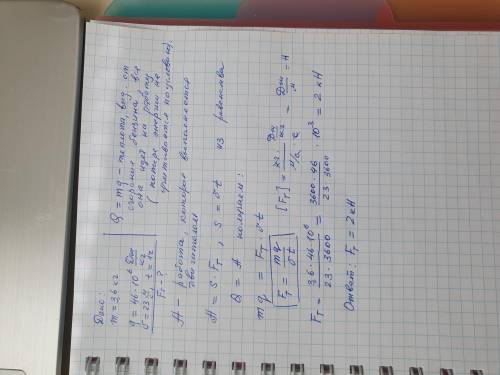 Дано:
m = 3,6 кг
q = 46·10⁶ Дж/кг
v = 23 м/с, t = 1 ч
Fт - ?
Q = mq - теплота, выд. от
сгорания бензина вся
она идёт на работу
(потери энергии не
учитываются по условию).
A - работа, которая выполняется
двигателем
A = S·Fт, S = vt из равенства
Q = A получаем:
mq = Fт vt
Fт = mq/vt [Fт] = кг·Дж/кг / м/с·с = Дж/м = Н
Fт = 3,6·46·10⁶/23·3600 = 3600·46/23·3600 · 10³ = 2 кН
Ответ: Fт = 2кН